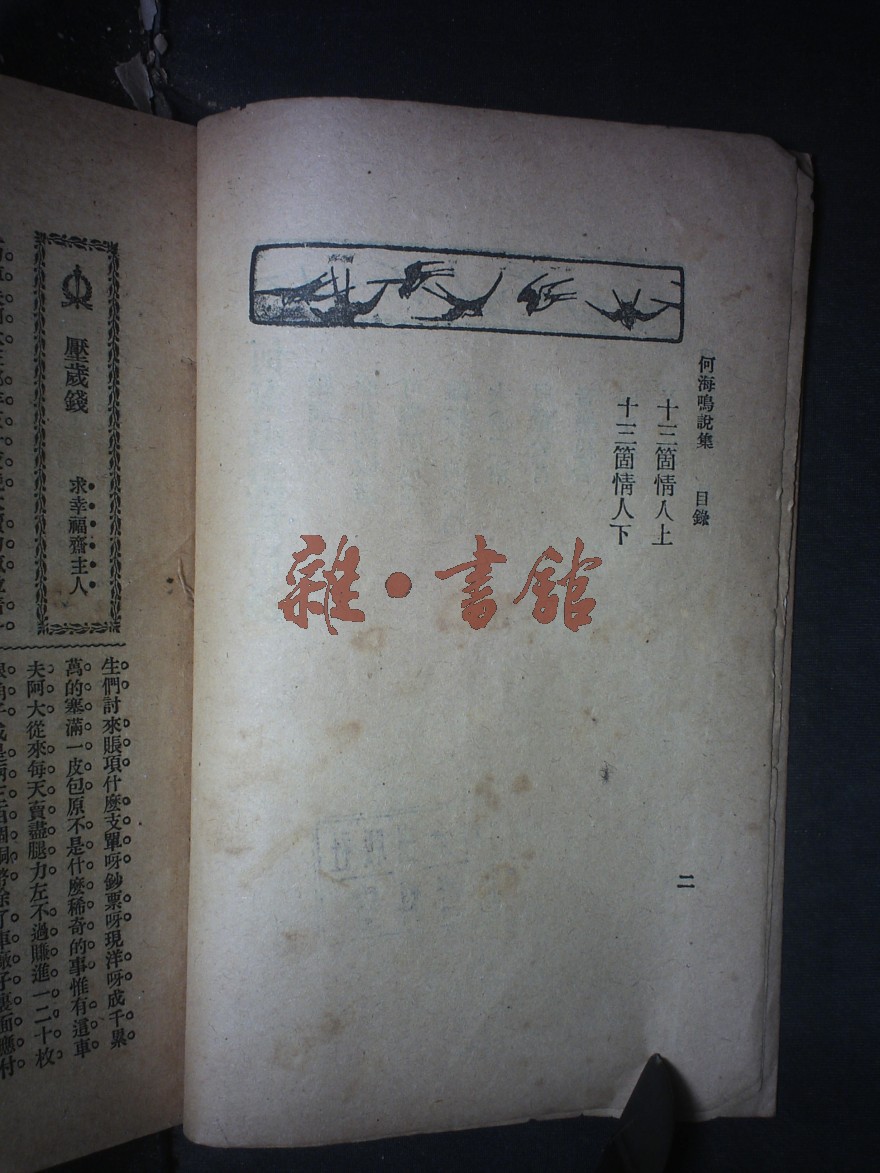 何海鳴說集 目錄
十三箇情人上
十三箇情人下
二
雜·書館
壓歲錢
求幸福齋主人
生們討來賬項什麼支單呀鈔票呀現洋呀成千累
萬的塞滿一皮包原不是什麼稀奇的事惟有這車
夫阿大從來每天賣盡腿力左不過賺進一二十枚